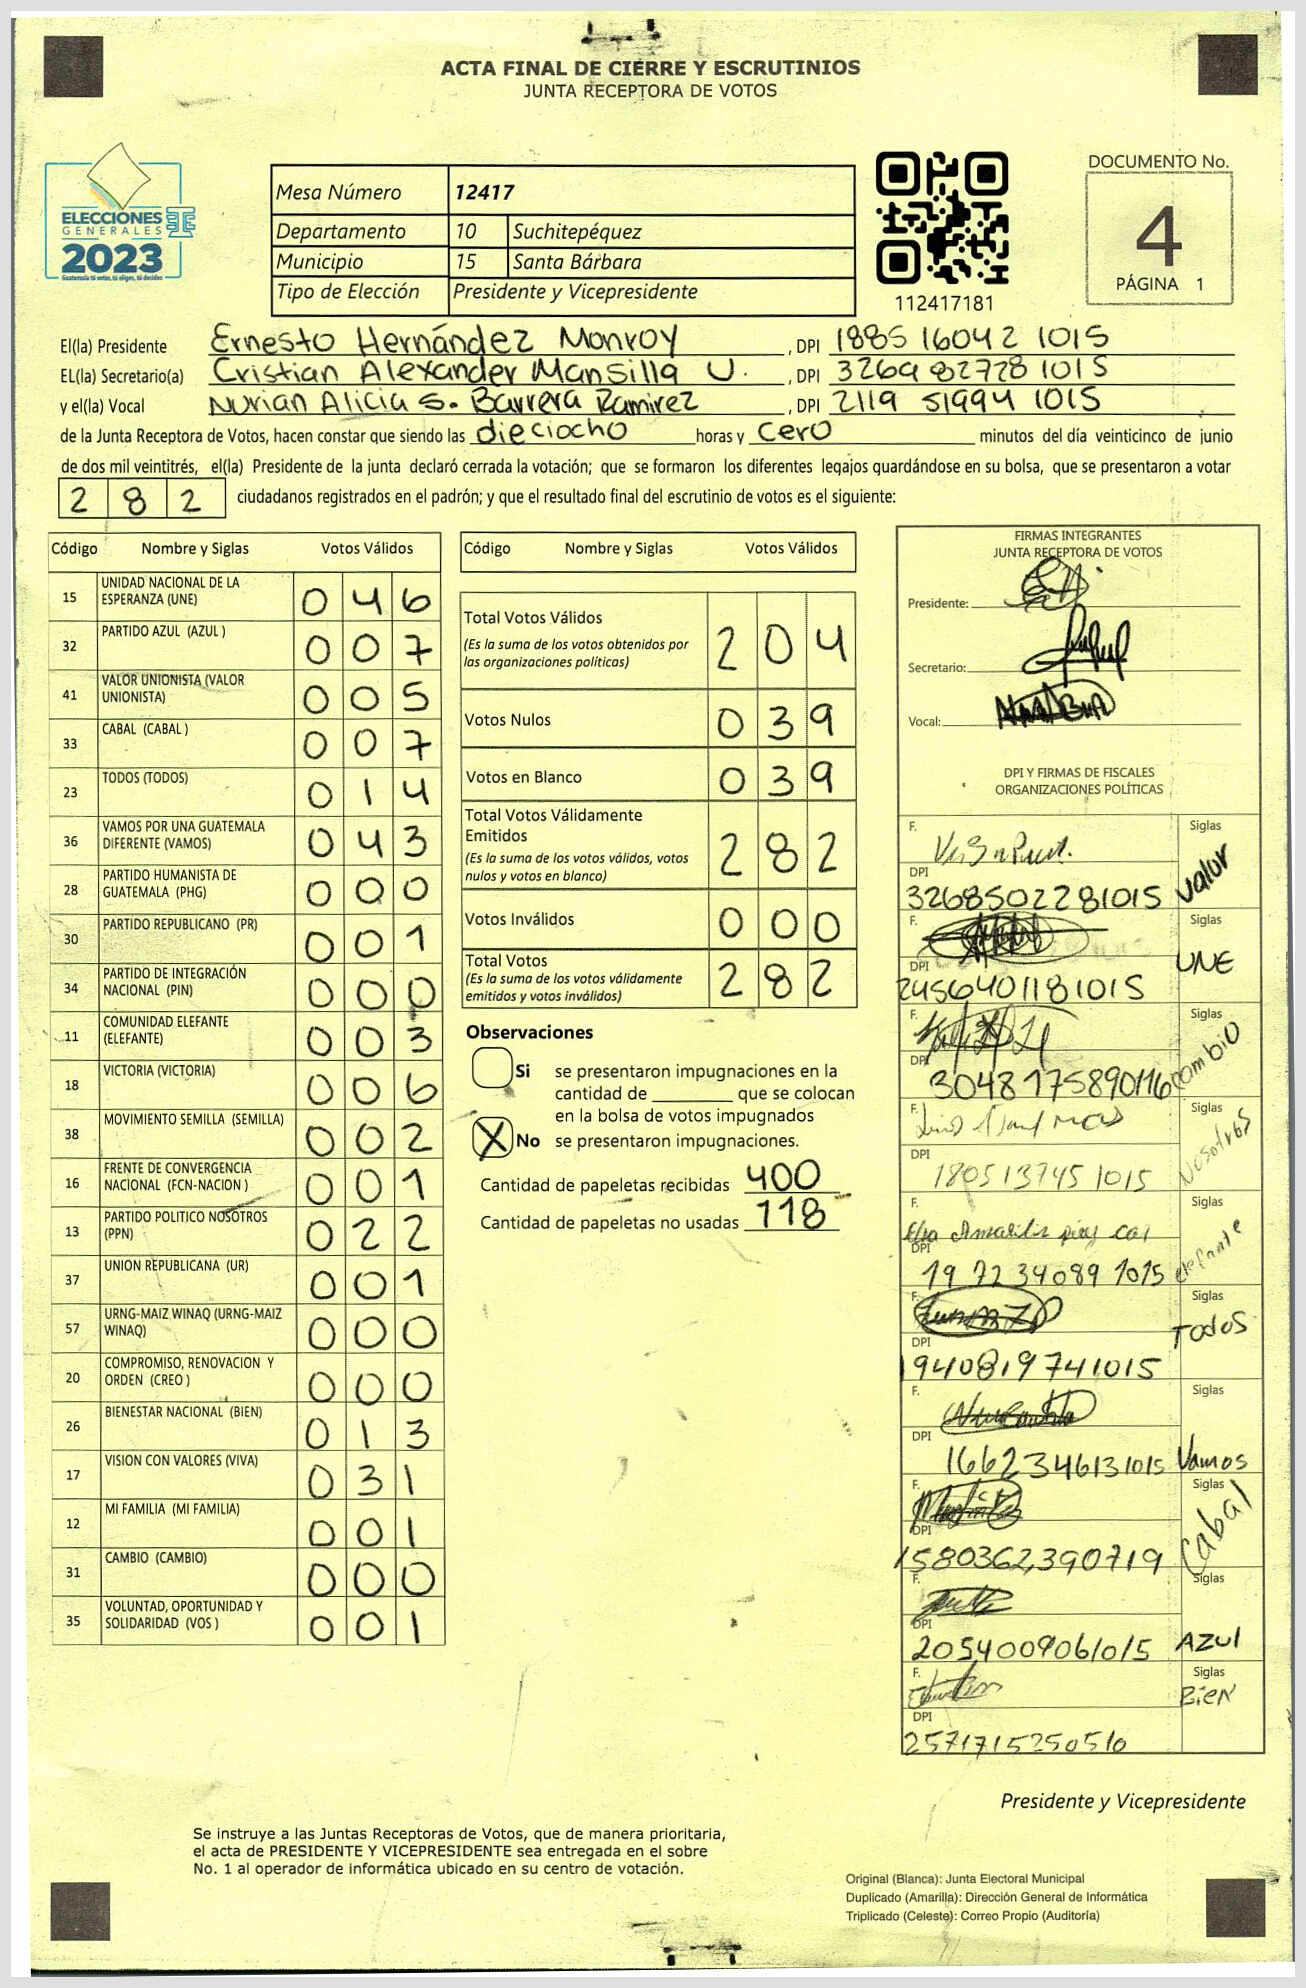 ACTA FINAL DE CIERRE Y ESCRUTINIOS
JUNTA RECEPTORA DE VOTOS
ELECCIONES
GENERALES
2023
Guatemala tú votas, tú eliges, tú decides
Mesa Número 12417
Departamento 10 Suchitepéquez
Municipio 15 Santa Bárbara
Tipo de Elección Presidente y Vicepresidente
112417181
DOCUMENTO No.
4
PÁGINA 1
El(la) Presidente Ernesto Hernández Monroy , DPI 1885 16042 1015
EL(la) Secretario(a) Cristian Alexander Mansilla U. , DPI 3269 82728 1015
y el(la) Vocal Nurian Alicia S. Barrera Ramirez , DPI 2119 51994 1015
de la Junta Receptora de Votos, hacen constar que siendo las dieciocho horas y cero minutos del día veinticinco de junio
de dos mil veintitrés, el(la) Presidente de la junta declaró cerrada la votación; que se formaron los diferentes legajos guardándose en su bolsa, que se presentaron a votar
2 8 2 ciudadanos registrados en el padrón; y que el resultado final del escrutinio de votos es el siguiente:
Código Nombre y Siglas Votos Válidos
15 UNIDAD NACIONAL DE LA ESPERANZA (UNE) 0 4 6
32 PARTIDO AZUL (AZUL ) 0 0 7
41 VALOR UNIONISTA (VALOR UNIONISTA) 0 0 5
33 CABAL (CABAL ) 0 0 7
23 TODOS (TODOS) 0 1 4
36 VAMOS POR UNA GUATEMALA DIFERENTE (VAMOS) 0 4 3
28 PARTIDO HUMANISTA DE GUATEMALA (PHG) 0 0 0
30 PARTIDO REPUBLICANO (PR) 0 0 1
34 PARTIDO DE INTEGRACIÓN NACIONAL (PIN) 0 0 0
11 COMUNIDAD ELEFANTE (ELEFANTE) 0 0 3
18 VICTORIA (VICTORIA) 0 0 6
38 MOVIMIENTO SEMILLA (SEMILLA) 0 0 2
16 FRENTE DE CONVERGENCIA NACIONAL (FCN-NACION ) 0 0 1
13 PARTIDO POLITICO NOSOTROS (PPN) 0 2 2
37 UNION REPUBLICANA (UR) 0 0 1
57 URNG-MAIZ WINAQ (URNG-MAIZ WINAQ) 0 0 0
20 COMPROMISO, RENOVACION Y ORDEN (CREO ) 0 0 0
26 BIENESTAR NACIONAL (BIEN) 0 1 3
17 VISION CON VALORES (VIVA) 0 3 1
12 MI FAMILIA (MI FAMILIA) 0 0 1
31 CAMBIO (CAMBIO) 0 0 0
35 VOLUNTAD, OPORTUNIDAD Y SOLIDARIDAD (VOS ) 0 0 1
Código Nombre y Siglas Votos Válidos
Total Votos Válidos 2 0 4
(Es la suma de los votos obtenidos por
las organizaciones políticas)
Votos Nulos 0 3 9
Votos en Blanco 0 3 9
Total Votos Válidamente
Emitidos 2 8 2
(Es la suma de los votos válidos, votos
nulos y votos en blanco)
Votos Inválidos 0 0 0
Total Votos 2 8 2
(Es la suma de los votos válidamente
emitidos y votos inválidos)
Observaciones
Si se presentaron impugnaciones en la
cantidad de ________ que se colocan
en la bolsa de votos impugnados
X No se presentaron impugnaciones.
Cantidad de papeletas recibidas 400
Cantidad de papeletas no usadas 118
FIRMAS INTEGRANTES
JUNTA RECEPTORA DE VOTOS
Presidente:
Secretario:
Vocal:
DPI Y FIRMAS DE FISCALES
ORGANIZACIONES POLÍTICAS
F. Siglas
DPI 3268502281015 Valor
F. Siglas
DPI 2456401181015 UNE
F. Siglas
DPI 3048175890116 Cambio
F. Siglas
DPI 180513745 1015 Nosotros
F. Siglas
DPI 1972340891015 elefante
F. Siglas
DPI 1940819741015 Todos
F. Siglas
DPI 1662346131015 Vamos
F. Siglas
DPI 1580362390719 Cabal
F. Siglas
DPI 2054009061015 AZUL
F. Siglas
DPI 2571715250510 BieN
Presidente y Vicepresidente
Se instruye a las Juntas Receptoras de Votos, que de manera prioritaria,
el acta de PRESIDENTE Y VICEPRESIDENTE sea entregada en el sobre
No. 1 al operador de informática ubicado en su centro de votación.
Original (Blanca): Junta Electoral Municipal
Duplicado (Amarilla): Dirección General de Informática
Triplicado (Celeste): Correo Propio (Auditoría)